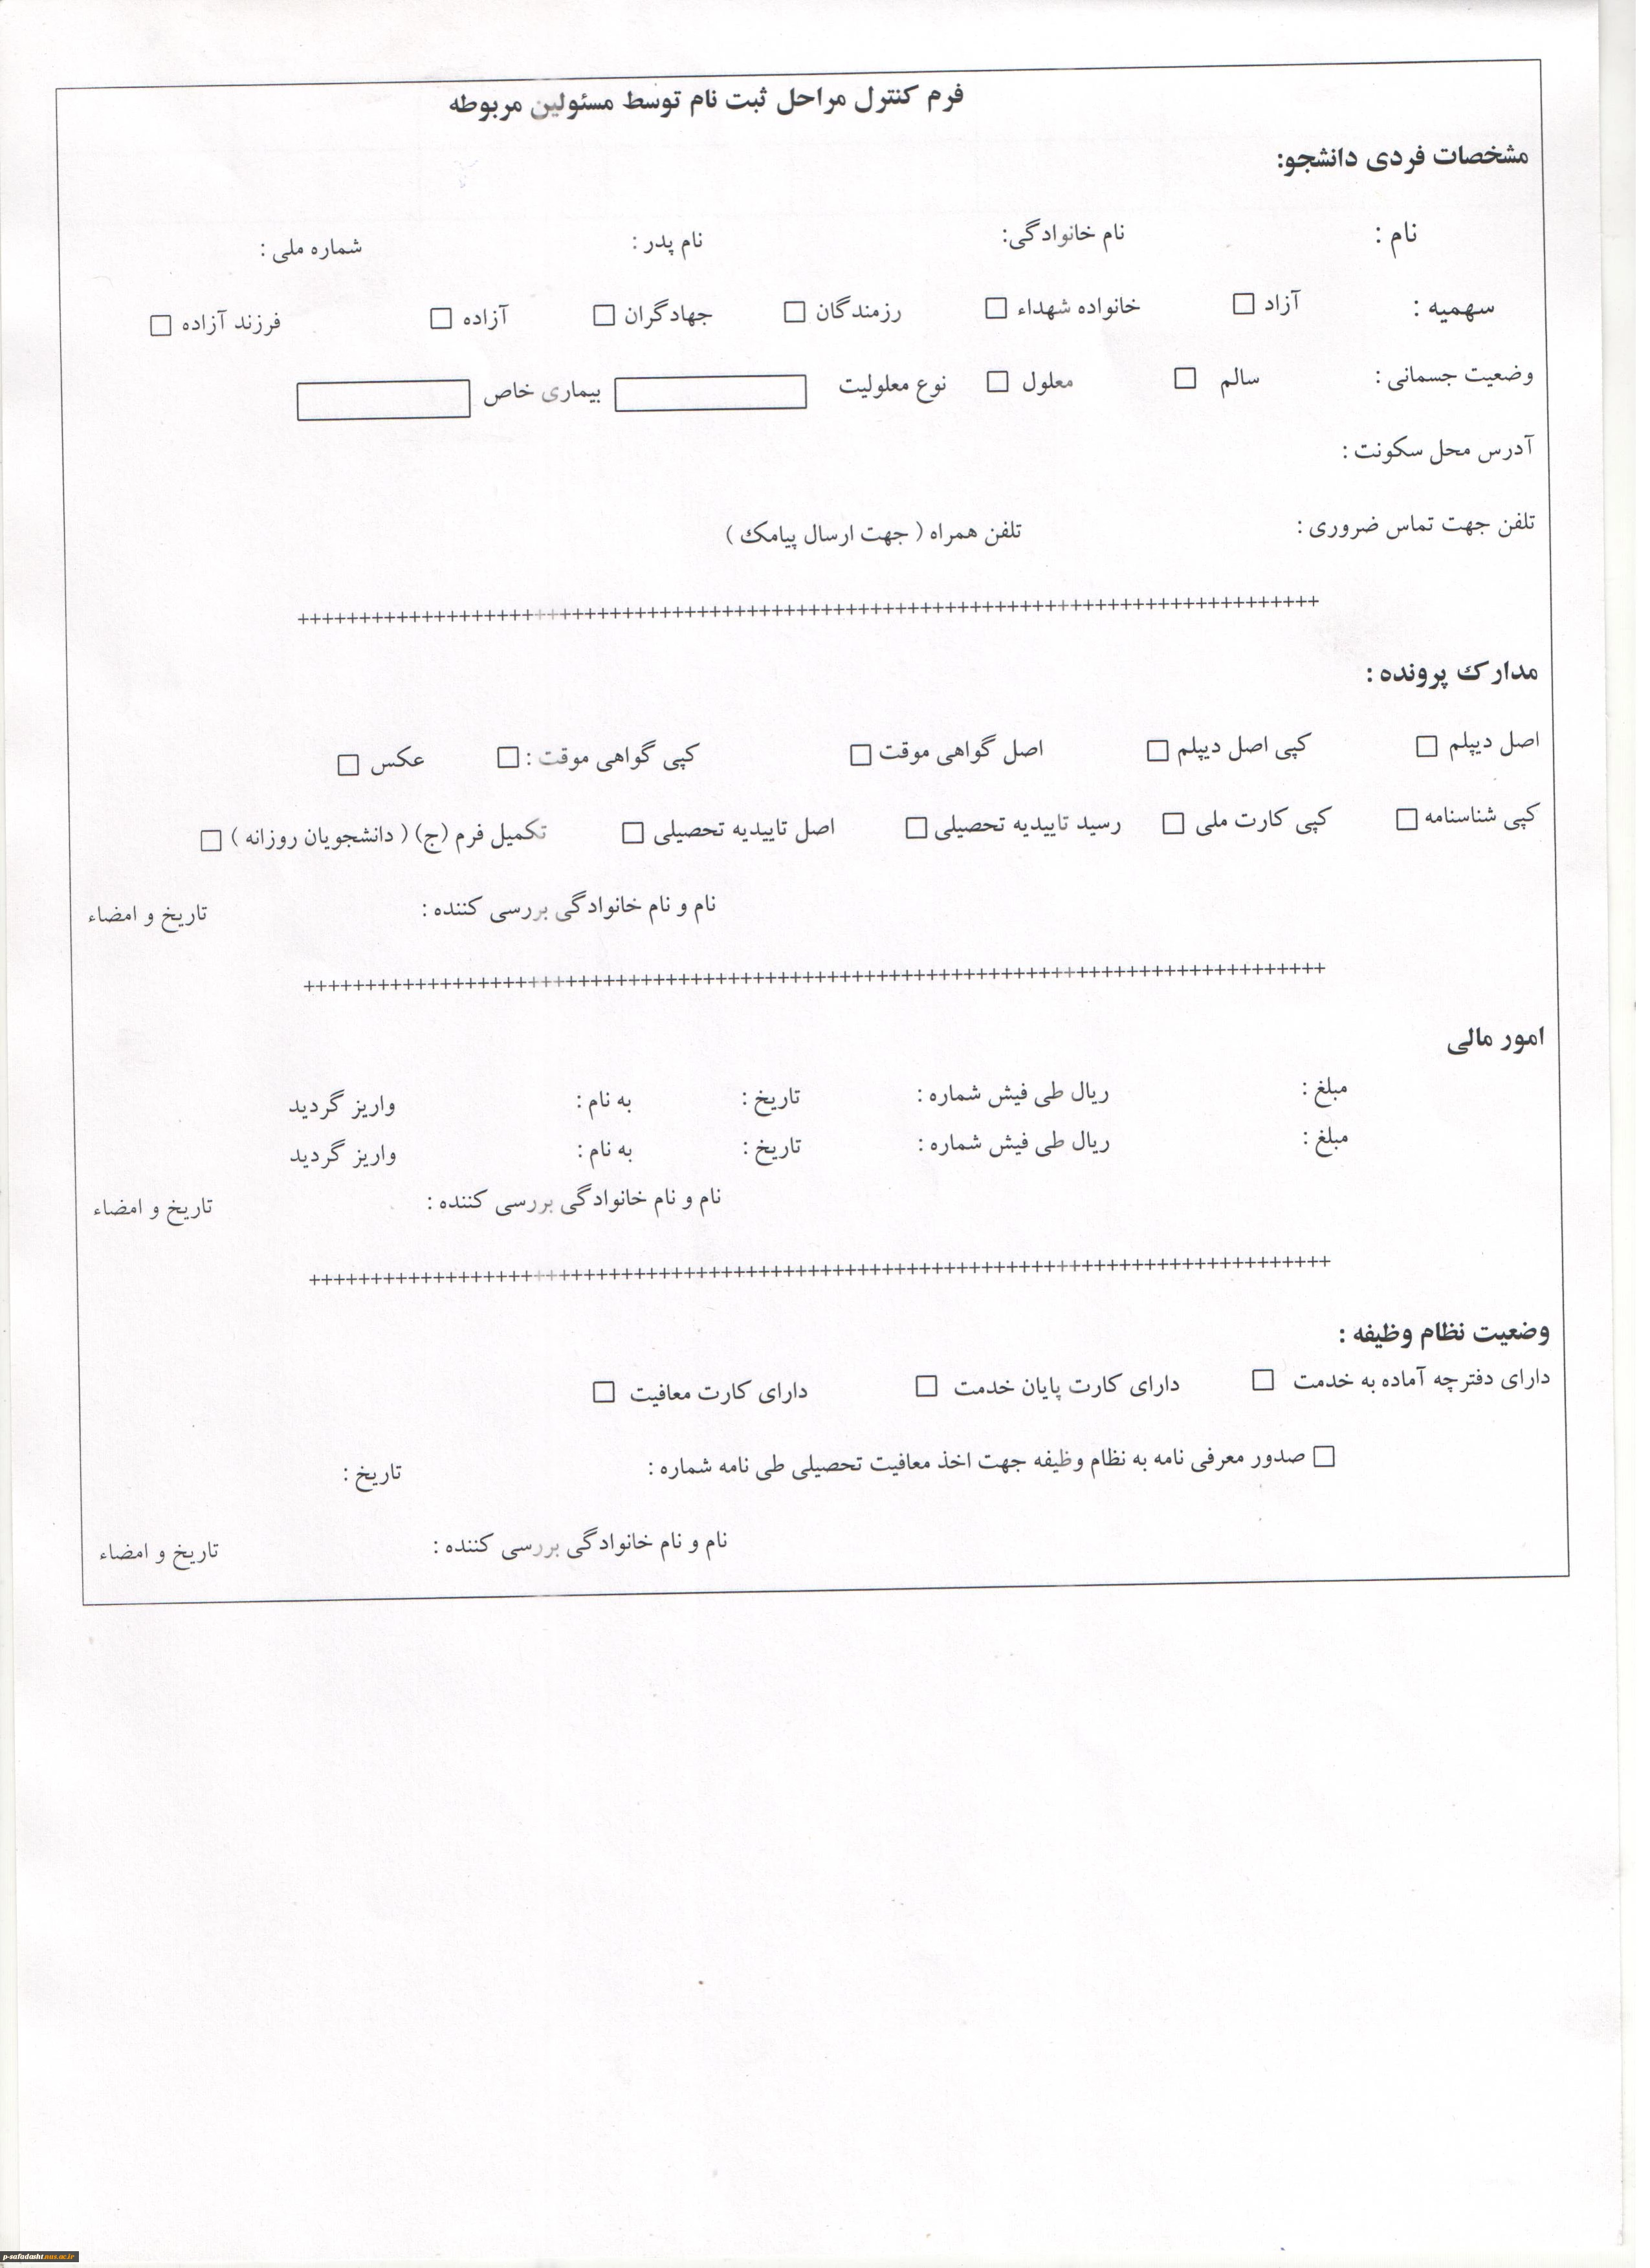 فرم کنترل مراحل ثبت نام توسط مسئولین مربوطه
مشخصات فردی دانشجو:
نام : نام خانوادگی: نام پدر : شماره ملی :
سهمیه : آزاد □ خانواده شهداء □ رزمندگان □ جهادگران □ آزاده □ فرزند آزاده □
وضعیت جسمانی : سالم □ معلول □ نوع معلولیت بیماری خاص
آدرس محل سکونت :
تلفن جهت تماس ضروری : تلفن همراه ( جهت ارسال پیامک )
++++++++++++++++++++++++++++++++++++++++++++++++++++++++++++++++++++++++++++++++++++
مدارک پرونده :
اصل دیپلم □ کپی اصل دیپلم □ اصل گواهی موقت □ کپی گواهی موقت : □ عکس □
کپی شناسنامه □ کپی کارت ملی □ رسید تاییدیه تحصیلی □ اصل تاییدیه تحصیلی □ تکمیل فرم (ج) ( دانشجویان روزانه ) □
نام و نام خانوادگی بررسی کننده : تاریخ و امضاء
++++++++++++++++++++++++++++++++++++++++++++++++++++++++++++++++++++++++++++++++++++
امور مالی
مبلغ : ریال طی فیش شماره : تاریخ : به نام : واریز گردید
مبلغ : ریال طی فیش شماره : تاریخ : به نام : واریز گردید
نام و نام خانوادگی بررسی کننده : تاریخ و امضاء
++++++++++++++++++++++++++++++++++++++++++++++++++++++++++++++++++++++++++++++++++++
وضعیت نظام وظیفه :
دارای دفترچه آماده به خدمت □ دارای کارت پایان خدمت □ دارای کارت معافیت □
□ صدور معرفی نامه به نظام وظیفه جهت اخذ معافیت تحصیلی طی نامه شماره : تاریخ :
نام و نام خانوادگی بررسی کننده : تاریخ و امضاء
p-safadasht.nus.ac.ir